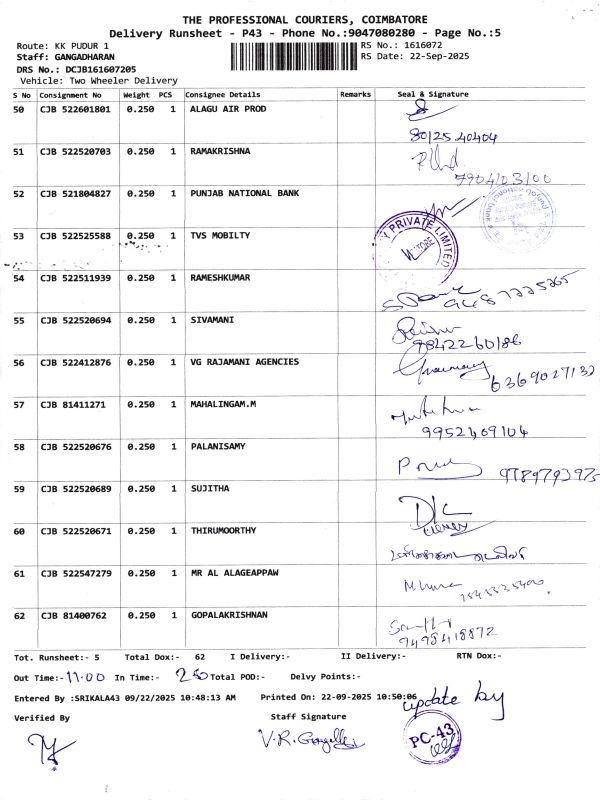 THE PROFESSIONAL COURIERS, COIMBATORE
Delivery Runsheet - P43 - Phone No.:9047080280 - Page No.:5
Route: KK PUDUR 1 RS No.: 1616072
Staff: GANGADHARAN RS Date: 22-Sep-2025
DRS No.: DCJB161607205
Vehicle: Two Wheeler Delivery
S No Consignment No Weight PCS Consignee Details Remarks Seal & Signature
50 CJB 522601801 0.250 1 ALAGU AIR PROD
80125 40404
51 CJB 522520703 0.250 1 RAMAKRISHNA
7904103100
52 CJB 521804827 0.250 1 PUNJAB NATIONAL BANK
53 CJB 522525588 0.250 1 TVS MOBILTY
PRIVATE LIMITED
54 CJB 522511939 0.250 1 RAMESHKUMAR
55 CJB 522520694 0.250 1 SIVAMANI
98422 60186
56 CJB 522412876 0.250 1 VG RAJAMANI AGENCIES
6369027132
57 CJB 81411271 0.250 1 MAHALINGAM.M
9952469104
58 CJB 522520676 0.250 1 PALANISAMY
59 CJB 522520689 0.250 1 SUJITHA
60 CJB 522520671 0.250 1 THIRUMOORTHY
61 CJB 522547279 0.250 1 MR AL ALAGEAPPAW
62 CJB 81400762 0.250 1 GOPALAKRISHNAN
9498418872
Tot. Runsheet:- 5 Total Dox:- 62 I Delivery:- II Delivery:- RTN Dox:-
Out Time:- 11.00 In Time:- 2.50 Total POD:- Delvy Points:-
Entered By :SRIKALA43 09/22/2025 10:48:13 AM Printed On: 22-09-2025 10:50:06
update by
Verified By Staff Signature
PC-43